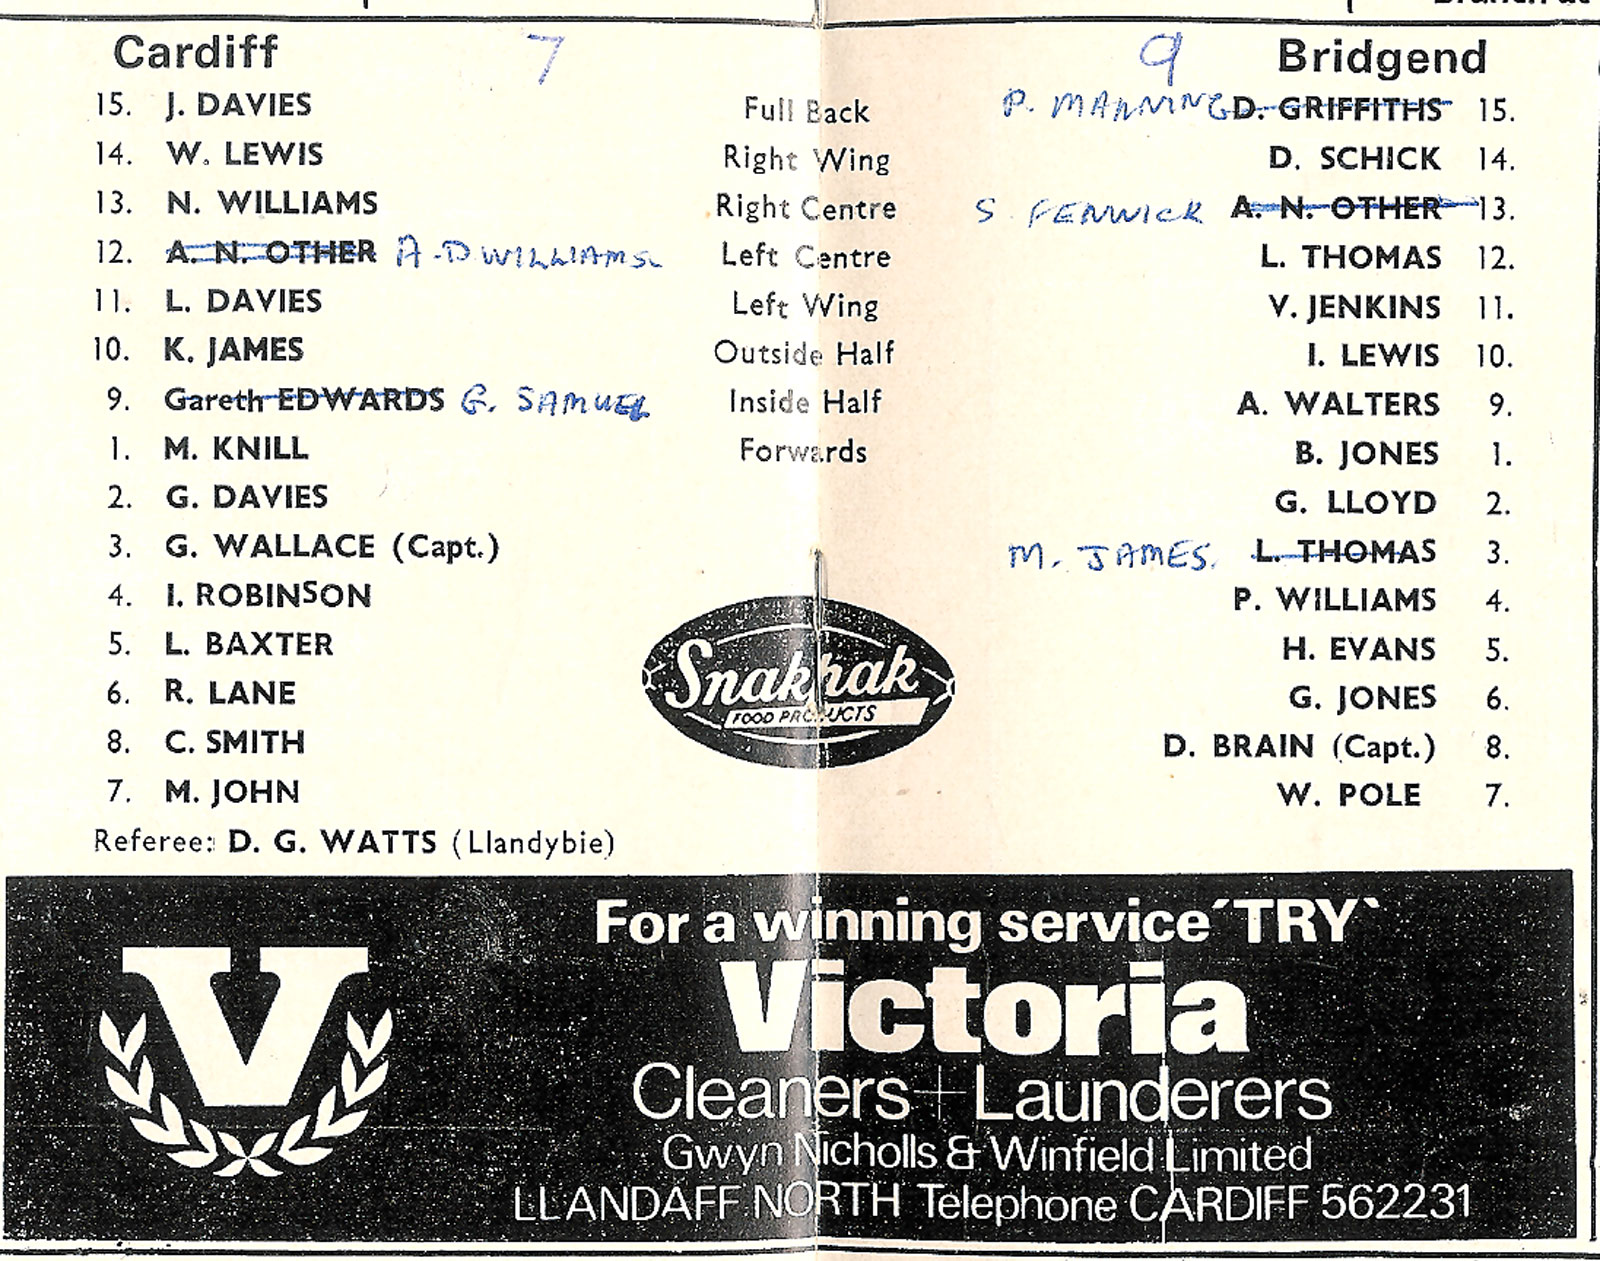 Cardiff 7 9 Bridgend
15. J. DAVIES Full Back P. MANNING D. GRIFFITHS 15.
14. W. LEWIS Right Wing D. SCHICK 14.
13. N. WILLIAMS Right Centre S FENWICK A. N. OTHER 13.
12. A. N. OTHER A.D WILLIAMS. Left Centre L. THOMAS 12.
11. L. DAVIES Left Wing V. JENKINS 11.
10. K. JAMES Outside Half I. LEWIS 10.
9. Gareth EDWARDS G. SAMUEL Inside Half A. WALTERS 9.
1. M. KNILL Forwards B. JONES 1.
2. G. DAVIES G. LLOYD 2.
3. G. WALLACE (Capt.) M. JAMES. L. THOMAS 3.
4. I. ROBINSON P. WILLIAMS 4.
5. L. BAXTER H. EVANS 5.
6. R. LANE G. JONES 6.
8. C. SMITH D. BRAIN (Capt.) 8.
7. M. JOHN W. POLE 7.
Snakpak
FOOD PRODUCTS
Referee: D. G. WATTS (Llandybie)
For a winning service ´TRY`
Victoria
Cleaners + Launderers
Gwyn Nicholls & Winfield Limited
LLANDAFF NORTH Telephone CARDIFF 562231
V